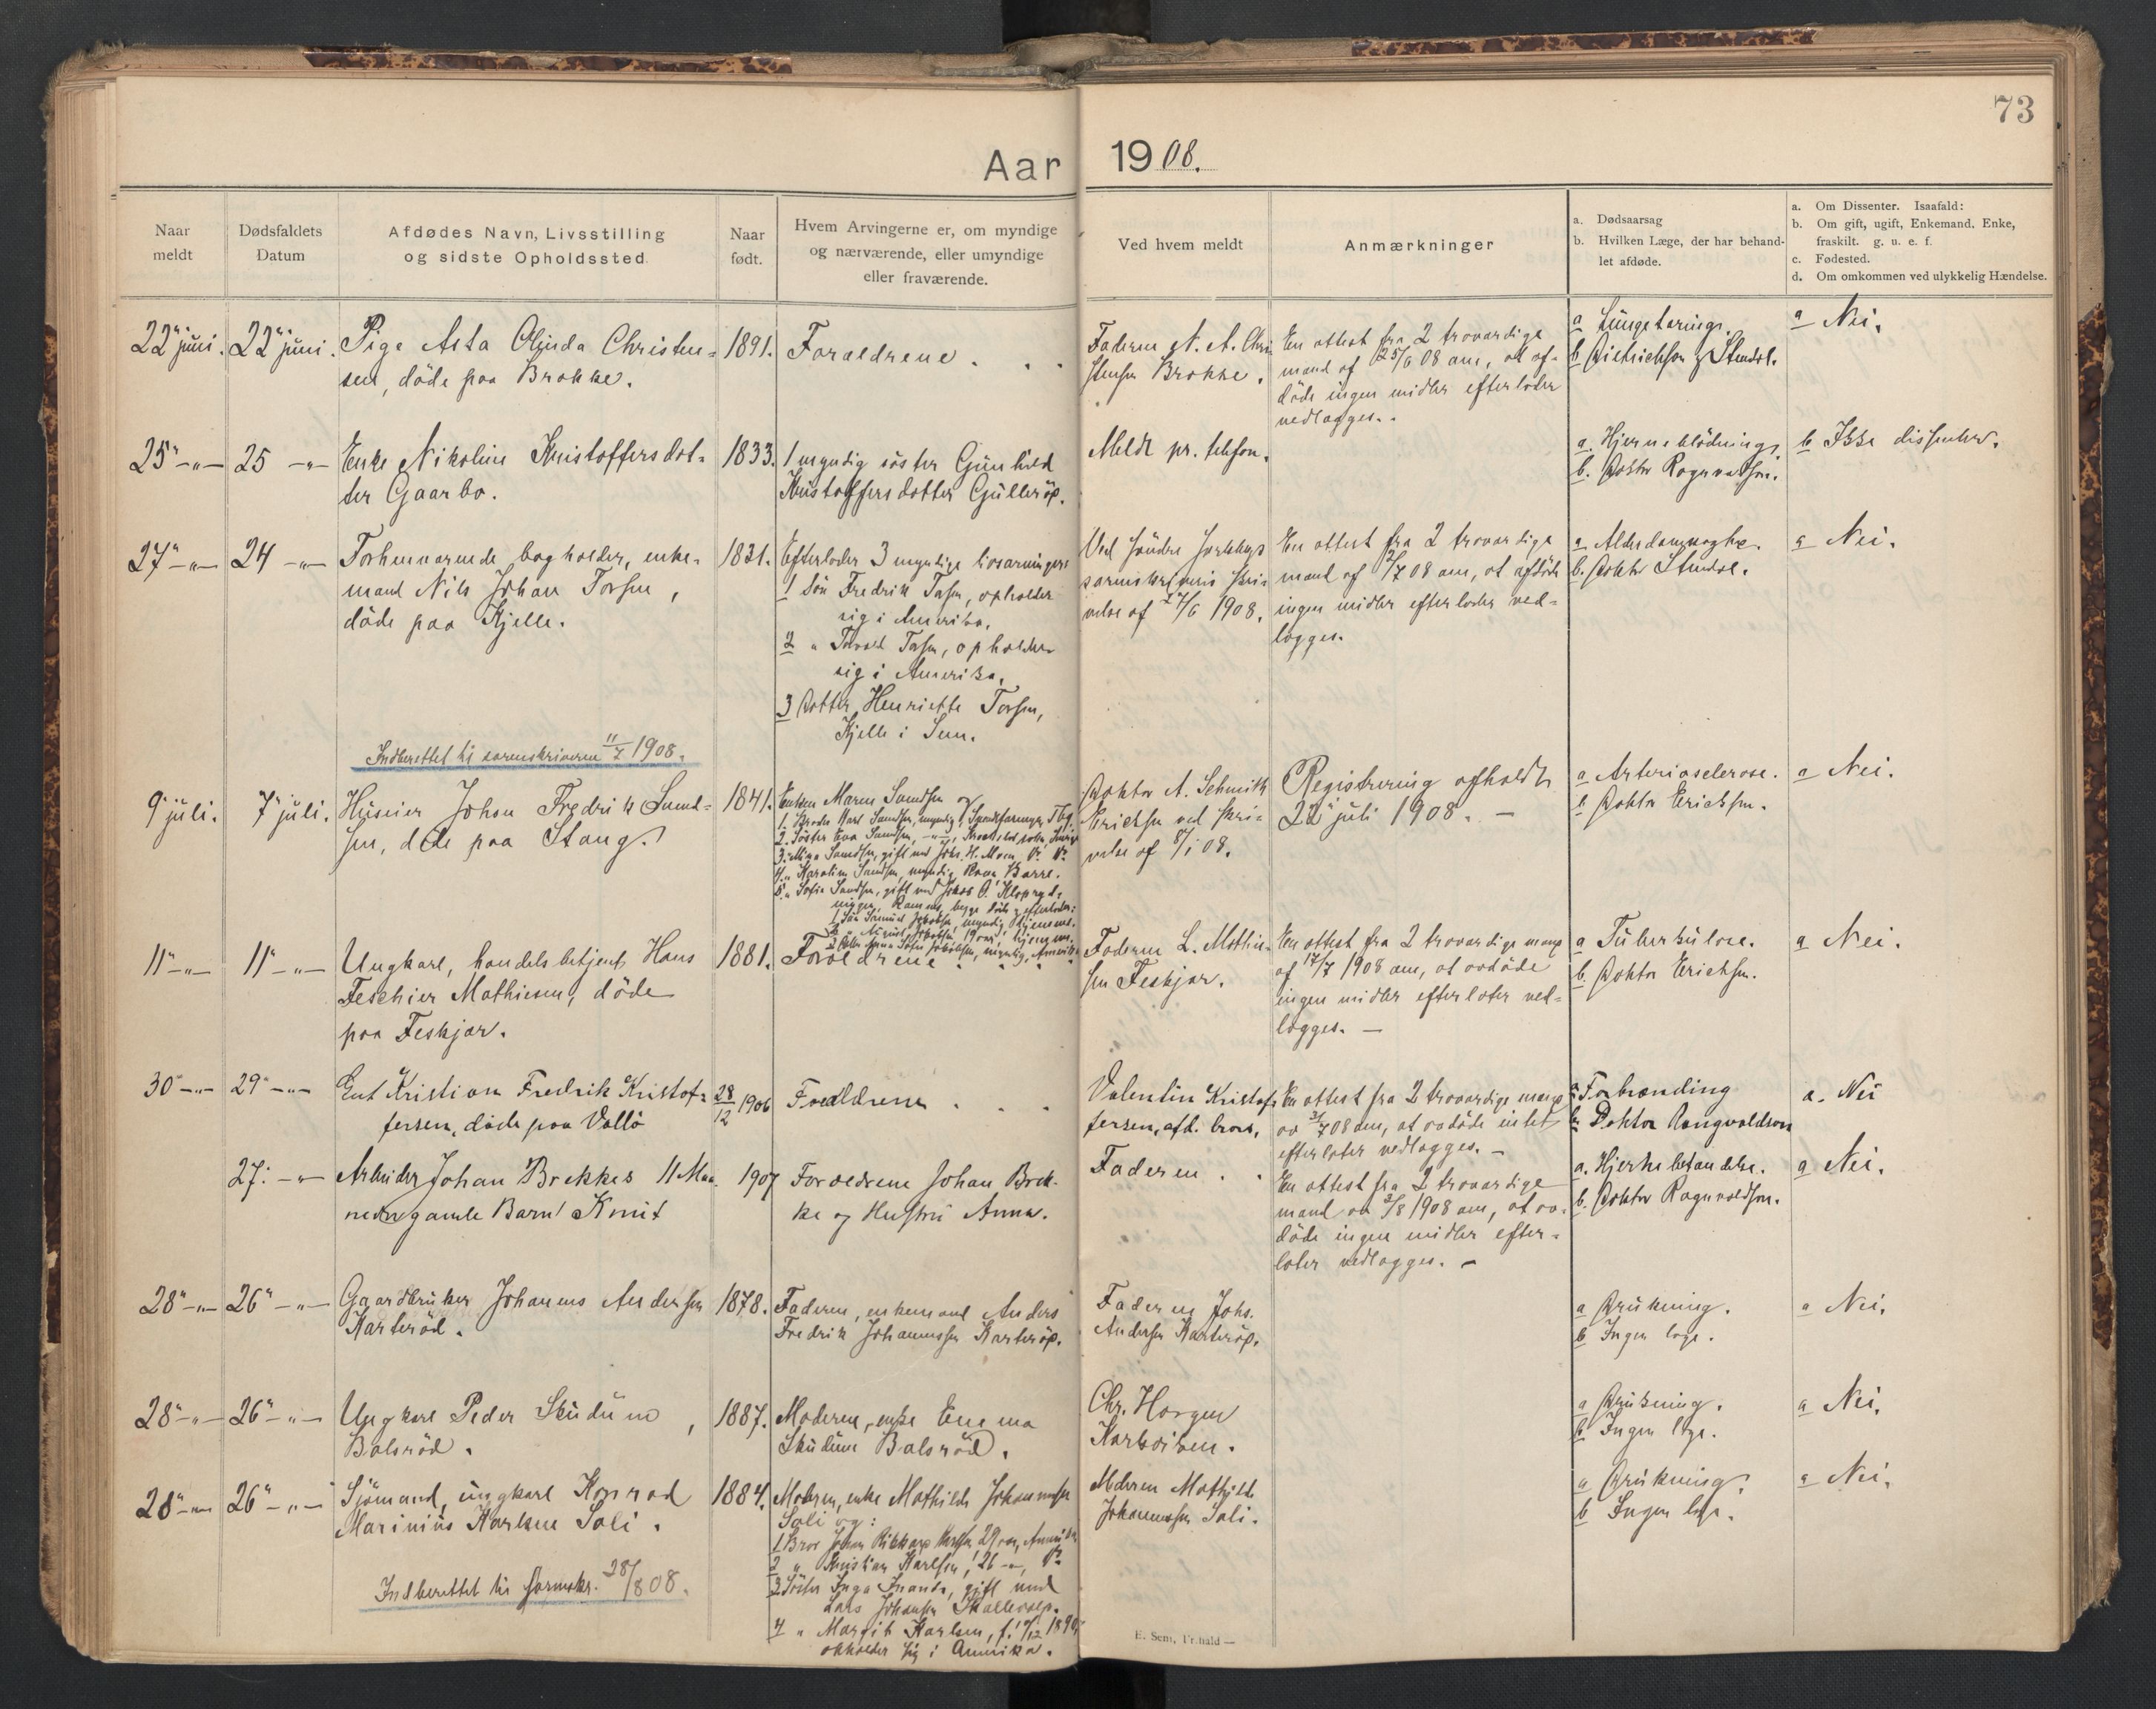 73
Aar 1908.
Naar
meldt
Dødsfaldets
Datum
Afdødes Navn, Livsstilling
og sidste Opholdssted
Naar
født.
Hvem Arvingerne er, om myndige
og nærværende, eller umyndige
eller fraværende.
Ved hvem meldt
Anmærkninger
a. Dødsaarsag
b. Hvilken Læge, der har behand-
let afdøde.
a. Om Dissenter. Isaafald:
b. Om gift, ugift, Enkemand, Enke,
fraskilt. g. u. e. f.
c. Fødested.
d. Om omkommen ved ulykkelig Hændelse.
22" juni.
22" juni.
Pige Asta Olinda Christen-
sen, döde paa Brekke.
1891.
Forældrene . . .
Faderen A. A. Chri-
stensen Brekke.
En attest fra 2 troværdige
mænd af 25/6 08 om, at af-
döde ingen midler efterlader
vedlægges..
a Lungetæring.
b Dietrichson & Stendal.
a Nei.
25"-"-
25 -"-
Enke Nikoline Kristoffersdat-
ter Gaarbo.
1833.
1 myndig söster Gunhild
Kristoffersdatter Gulleröd.
Meldt pr. telefon.
a. Hjerneblödning.
b. Doktor Ragnvaldsen.
b Ikke dissenter.
27"-"-
24 -"-
Forhenværende bogholder, enke-
mand Nils Johan Torsen,
döde paa Kjelle.
1831.
Efterlader 3 myndige livsarvinger:
1 Sön Fredrik Torsen, opholder
sig i Amerika.
2 " Torvald Torsen, opholder
sig i Amerika.
3 Datter Henriette Torsen,
Kjelle i Sem.
Ved söndre Jarlsbergs
sorenskriveris skri-
velse af 27/6 1908.
En attest fra 2 troværdige
mænd af 2/7 08 om, at afdöde
ingen midler efterlader ved-
lægges.
a Alderdomssvaghed.
b. Doktor Stendal.
a Nei.
Indberettet til sorenskriveren 11/7 1908.
9" juli.
7" juli.
Huseier Johan Fredrik Sund-
sen, döde paa Stang.
1841.
Enken Maren Sundsen og
Doktor A. Schmith
Erichsen ved skri-
velse af 8/7 08.
Registrering afholdt
22" juli 1908. —
a Arteriosclerose.
b Doktor Erichsen.
a Nei.
11"-"-
11"-"-
Ungkarl, handelsbetjent Hans
Feschier Mathiesen, döde
paa Feskjær.
1881.
Forældrene . . .
Faderen L. Mathie-
sen Feskjær.
En attest fra 2 troværdige mænd
af 17/7 1908 om, at avdöde
ingen midler efterlater ved-
lægges. —
a Tuberkulose.
b. Doktor Erichsen.
a Nei.
30"-"-
29"-"-
Gut Kristian Fredrik Kristof-
fersen, döde paa Vallö
28/12 1906
Forældrene . . .
Valentin Kristof-
fersen, afd. bror,
En attest fra 2 troværdige mænd
av 31/7 08 om, at avdöde intet
efterlater vedlægges. —
a Forbrænding
b Doktor Rangvaldson
a. Nei
27. -"-
Arbeider Johan Brekkes 11 Maa-
neder gamle Barn Knut
1907
Forældrene Johan Brek-
ke og Hustru Anna.
Faderen . .
En attest fra 2 troværdige
mænd av 3/8 1908 om, at av-
döde ingen midler efter-
later vedlægges. —
a. Hjertebetændelse.
b. Doktor Ragnvaldsen.
a Nei.
28"-"-
26"-"-
Gaardbruker Johannes Andersen
Karteröd.
1878.
Faderen, enkemand Anders
Fredrik Johannessen Karteröd.
Faderen Johs.
Andersen Karteröd.
a Drukning.
b Ingen læge.
a Nei.
28"-"-
26"-"-
Ungkarl Peder Skudum,
Bolsröd.
1887.
Moderen, enke Emma
Skudum Bolsröd.
Chr. Horgen
a Drukning.
b Ingen læge.
a Nei.
28"-"-
26"-"-
Sjömand, ungkarl Konrad
Marinius Karlsen Soli.
1884.
Moderen, enke Mathilde Johannessen
Soli og:
1 Bror Johan Rikhard Karlsen, 29 aar, Amerika
2 " Kristian Karlsen, 26 -"-, Do
3 Söster Inga Jnanda, gift med
Lars Johansen
4 " Margit Karlsen,
opholder sig i Amerika.
Moderen Mathilde
Johannessen Soli.
a Drukning.
b Ingen læge.
a Nei.
Indberettet til sorenskr. 28/8 08.
E. Sem, Fr.hald —